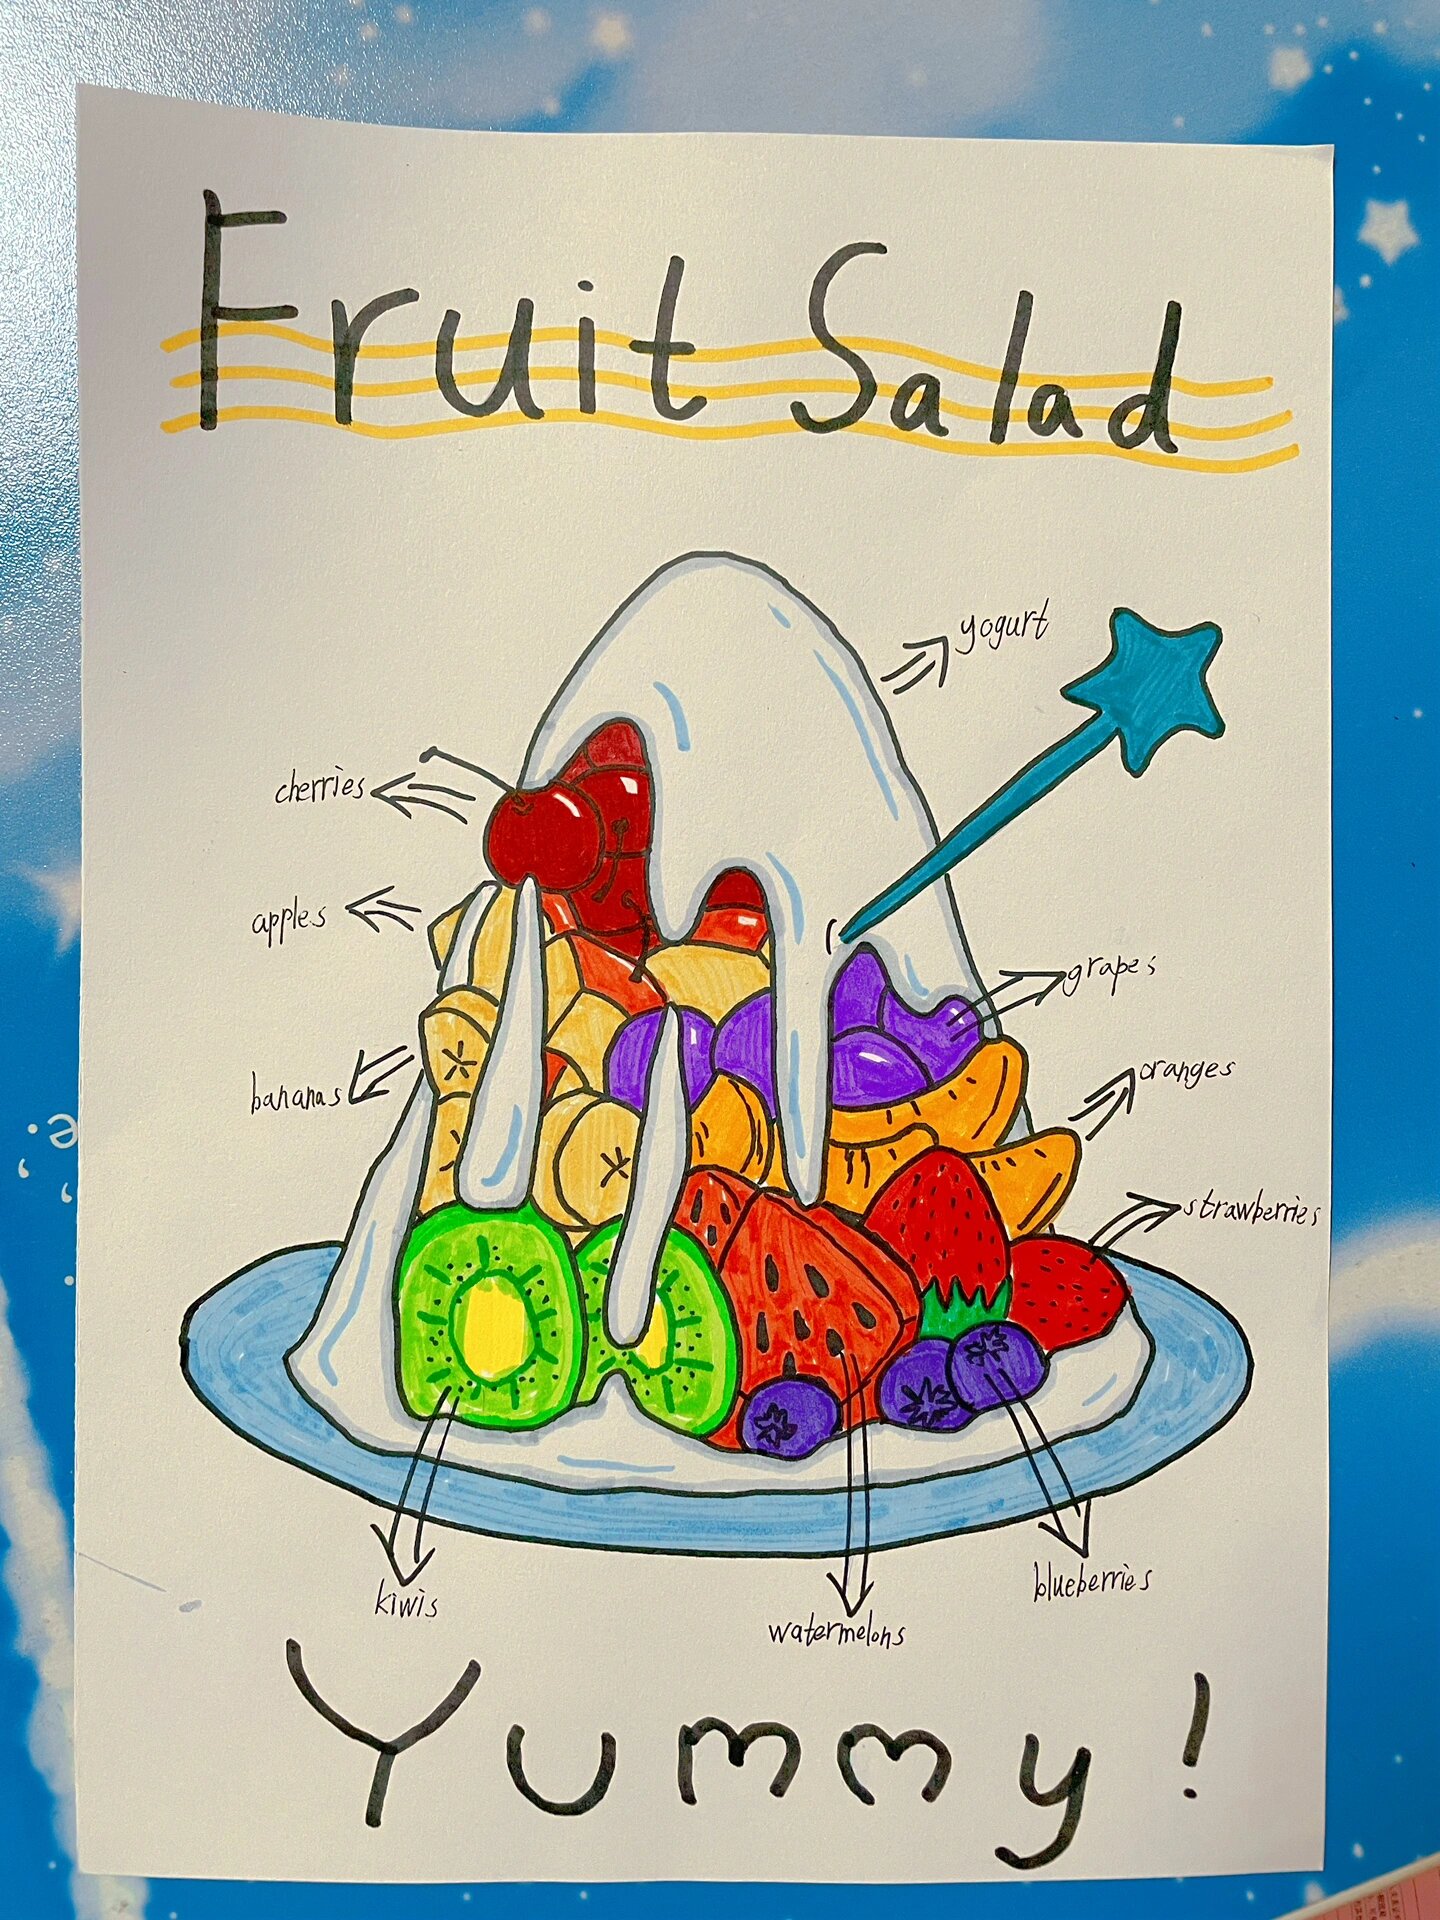 Fruit Salad
yogurt
cherries
apples
grapes
bananas
oranges
strawberries
kiwis
watermelons
blueberries
Yummy!